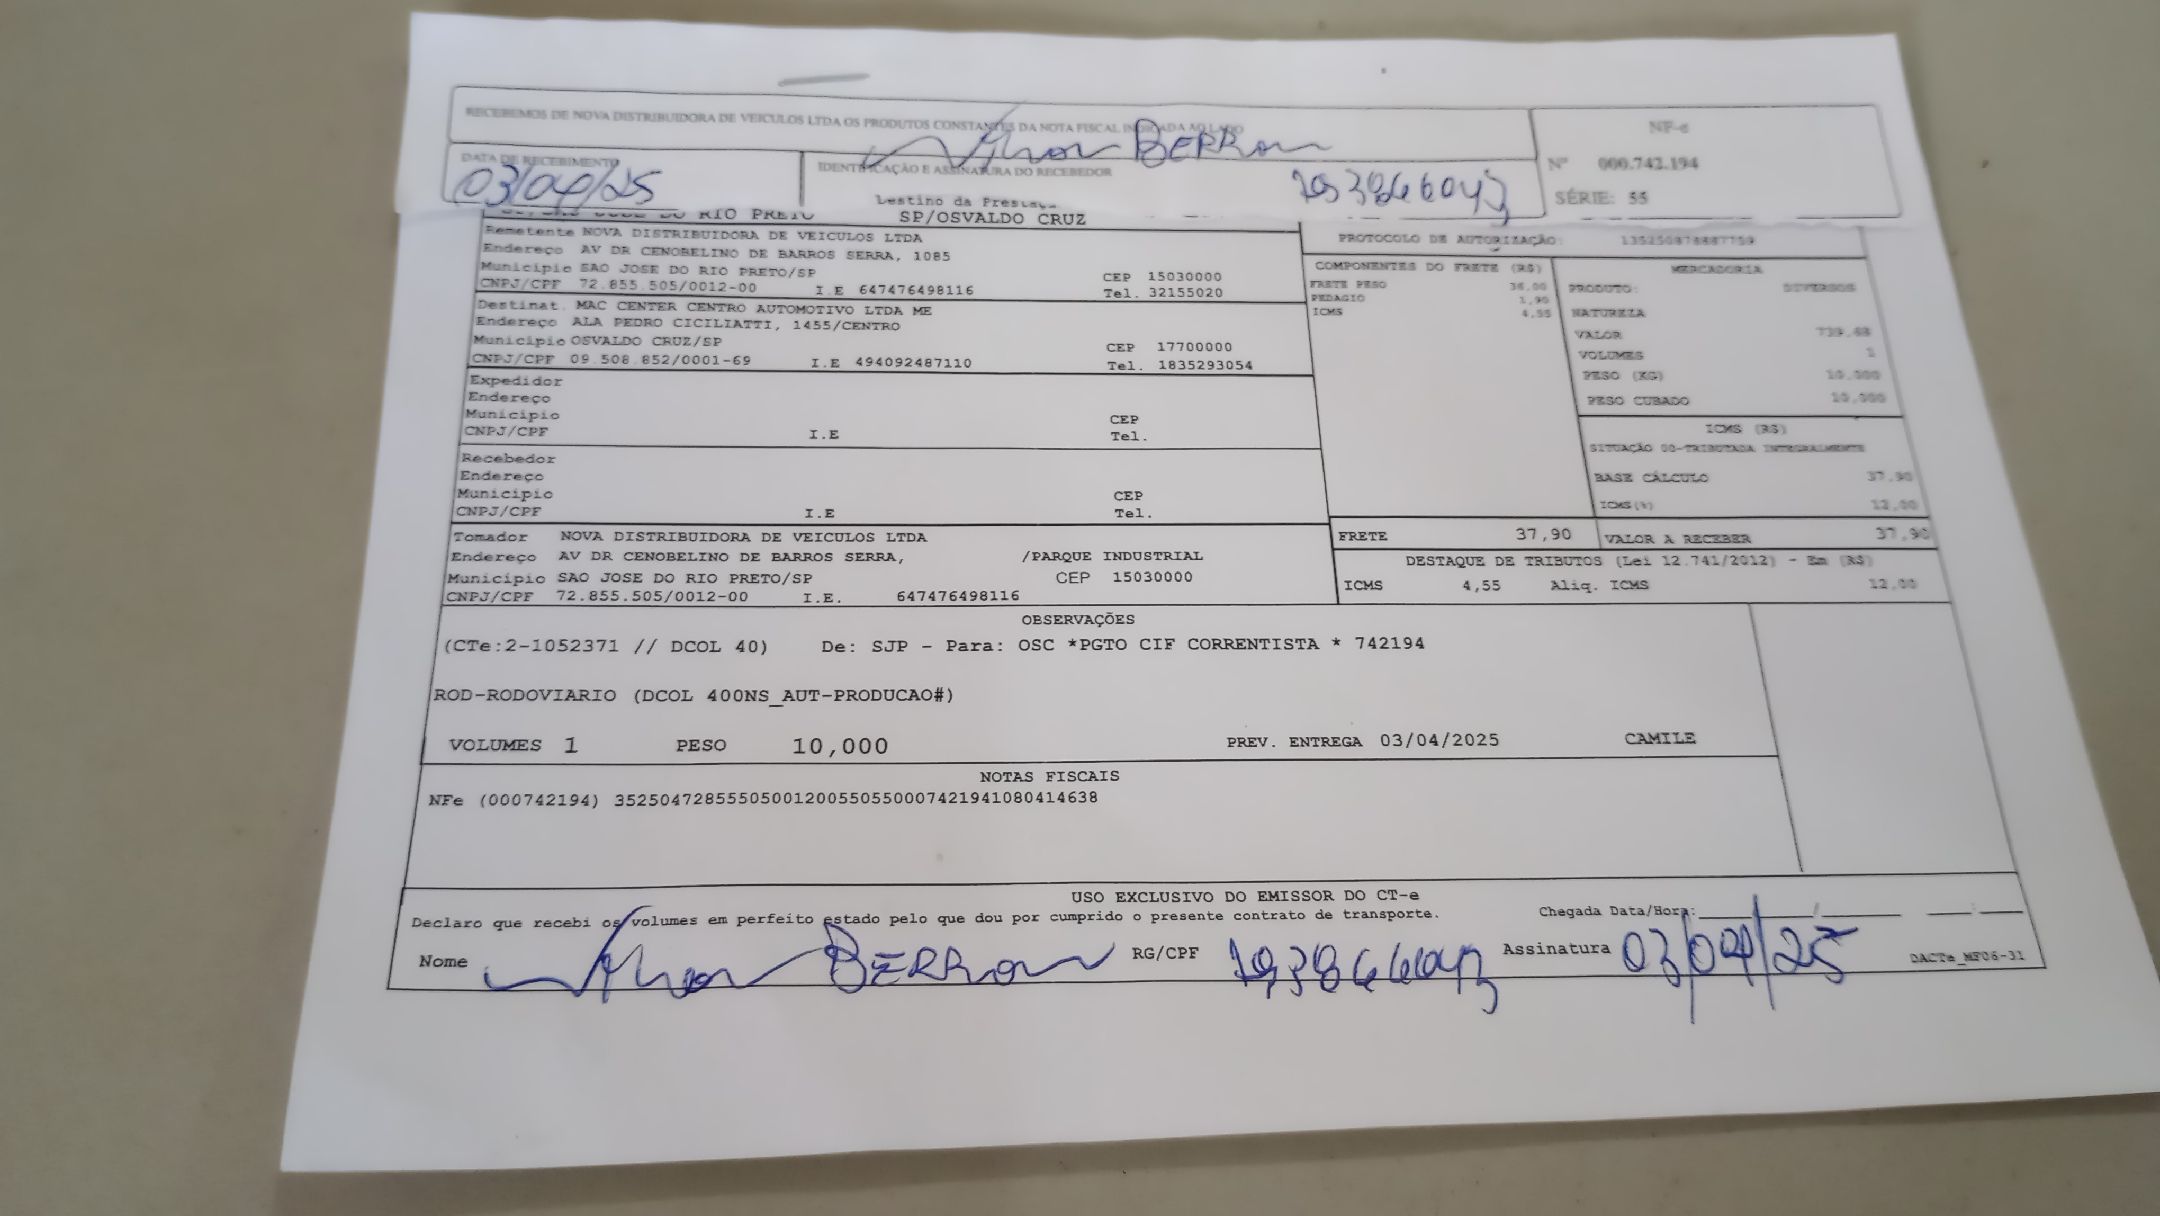 RECEBEMOS DE NOVA DISTRIBUIDORA DE VEICULOS LTDA OS PRODUTOS CONSTANTES DA NOTA FISCAL INDICADA AO LADO
NF-e
Nº 000.742.194
SÉRIE: 55
DATA DE RECEBIMENTO
03/04/25
IDENTIFICAÇÃO E ASSINATURA DO RECEBEDOR
BERRON
Destino da Prestaç
DO RIO PRETO SP/OSVALDO CRUZ
Remetente NOVA DISTRIBUIDORA DE VEICULOS LTDA
Endereço AV DR CENOBELINO DE BARROS SERRA, 1085
Município SAO JOSE DO RIO PRETO/SP CEP 15030000
CNPJ/CPF 72.855.505/0012-00 I.E 647476498116 Tel. 32155020
Destinat. MAC CENTER CENTRO AUTOMOTIVO LTDA ME
Endereço ALA PEDRO CICILIATTI, 1455/CENTRO
Município OSVALDO CRUZ/SP CEP 17700000
CNPJ/CPF 09.508.852/0001-69 I.E 494092487110 Tel. 1835293054
Expedidor
Endereço
Município CEP
CNPJ/CPF I.E Tel.
Recebedor
Endereço
Município CEP
CNPJ/CPF I.E Tel.
Tomador NOVA DISTRIBUIDORA DE VEICULOS LTDA
Endereço AV DR CENOBELINO DE BARROS SERRA, /PARQUE INDUSTRIAL
Município SAO JOSE DO RIO PRETO/SP CEP 15030000
CNPJ/CPF 72.855.505/0012-00 I.E. 647476498116
PROTOCOLO DE AUTORIZAÇÃO:
COMPONENTES DO FRETE (R$)
FRETE PESO 36,00
PEDAGIO 1,90
ICMS 4,55
MERCADORIA
PRODUTO: DIVERSOS
NATUREZA
VALOR
VOLUMES 1
PESO (KG) 10,000
PESO CUBADO 10,000
ICMS (R$)
SITUAÇÃO 00-TRIBUTADA INTEGRALMENTE
BASE CÁLCULO 37,90
ICMS(%) 12,00
FRETE 37,90 VALOR A RECEBER 37,90
DESTAQUE DE TRIBUTOS (Lei 12.741/2012) - Em (R$)
ICMS 4,55 Aliq. ICMS 12,00
OBSERVAÇÕES
(CTe:2-1052371 // DCOL 40) De: SJP - Para: OSC *PGTO CIF CORRENTISTA * 742194
ROD-RODOVIARIO (DCOL 400NS_AUT-PRODUCAO#)
VOLUMES 1 PESO 10,000 PREV. ENTREGA 03/04/2025 CAMILE
NOTAS FISCAIS
NFe (000742194) 35250472855505001200550550007421941080414638
USO EXCLUSIVO DO EMISSOR DO CT-e
Declaro que recebi os volumes em perfeito estado pelo que dou por cumprido o presente contrato de transporte. Chegada Data/Hora:
Nome BERRON RG/CPF Assinatura 03/04/25 DACTe_MF06-31